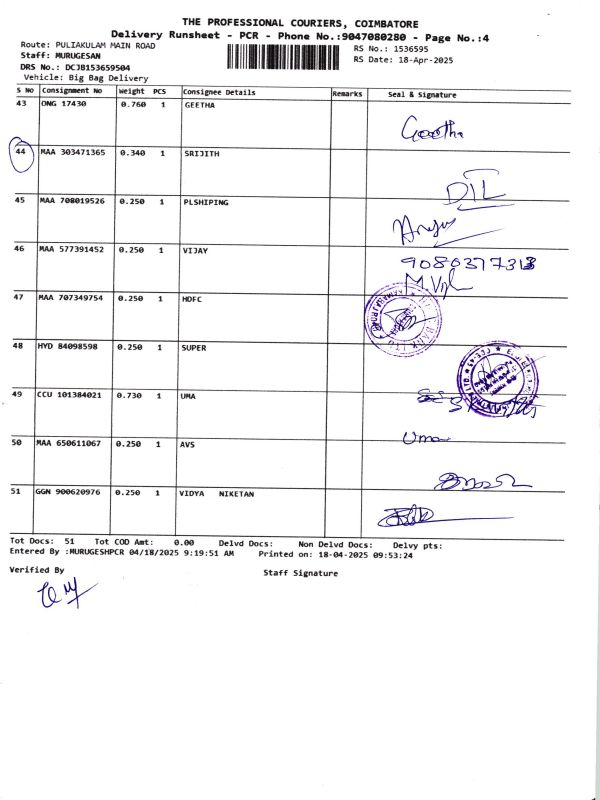 THE PROFESSIONAL COURIERS, COIMBATORE
Delivery Runsheet - PCR - Phone No.:9047080280 - Page No.:4
Route: PULIAKULAM MAIN ROAD
RS No.: 1536595
Staff: MURUGESAN
RS Date: 18-Apr-2025
DRS No.: DCJB153659504
Vehicle: Big Bag Delivery
S No Consignment No Weight PCS Consignee Details Remarks Seal & Signature
43 ONG 17430 0.760 1 GEETHA
Geetha
44 MAA 303471365 0.340 1 SRIJITH
DIL
45 MAA 708019526 0.250 1 PLSHIPING
46 MAA 577391452 0.250 1 VIJAY
M.
47 MAA 707349754 0.250 1 HDFC
48 HYD 84098598 0.250 1 SUPER
49 CCU 101384021 0.730 1 UMA
Uma
50 MAA 650611067 0.250 1 AVS
51 GGN 900620976 0.250 1 VIDYA NIKETAN
Tot Docs: 51 Tot COD Amt: 0.00 Delvd Docs: Non Delvd Docs: Delvy pts:
Entered By :MURUGESHPCR 04/18/2025 9:19:51 AM Printed on: 18-04-2025 09:53:24
Verified By
Staff Signature